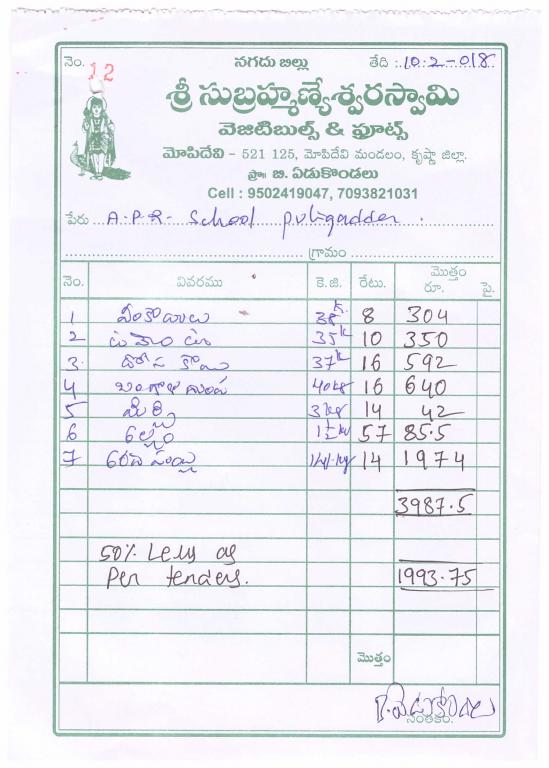 నెం. 12 నగదు బిల్లు తేది :..10.2-018
శ్రీ సుబ్రహ్మణ్యేశ్వరస్వామి
వెజిటిబుల్స్ & ఫ్రూట్స్
మోపిదేవి - 521 125, మోపిదేవి మండలం, కృష్ణా జిల్లా.
ప్రొః బి. ఏడుకొండలు
Cell : 9502419047, 7093821031
పేరు A.P.R- School puligadda .
గ్రామం
నెం. వివరము కె.జి. రేటు. మొత్తం రూ. పై.
1 వంకాయలు 38 k. 8 304
2 టమాటా 35 k 10 350
3. దోస కాయ 37 k 16 592
4 బంగాళ దుంప 40 kg 16 640
5 మిర్చి 3 kg 14 42
6 అల్లం 1½ kg 57 85.5
7 అరటి పండ్లు 141.kg 14 1974
3987.5
50% Less as
Per tenders. 1993.75
మొత్తం
సంతకం.